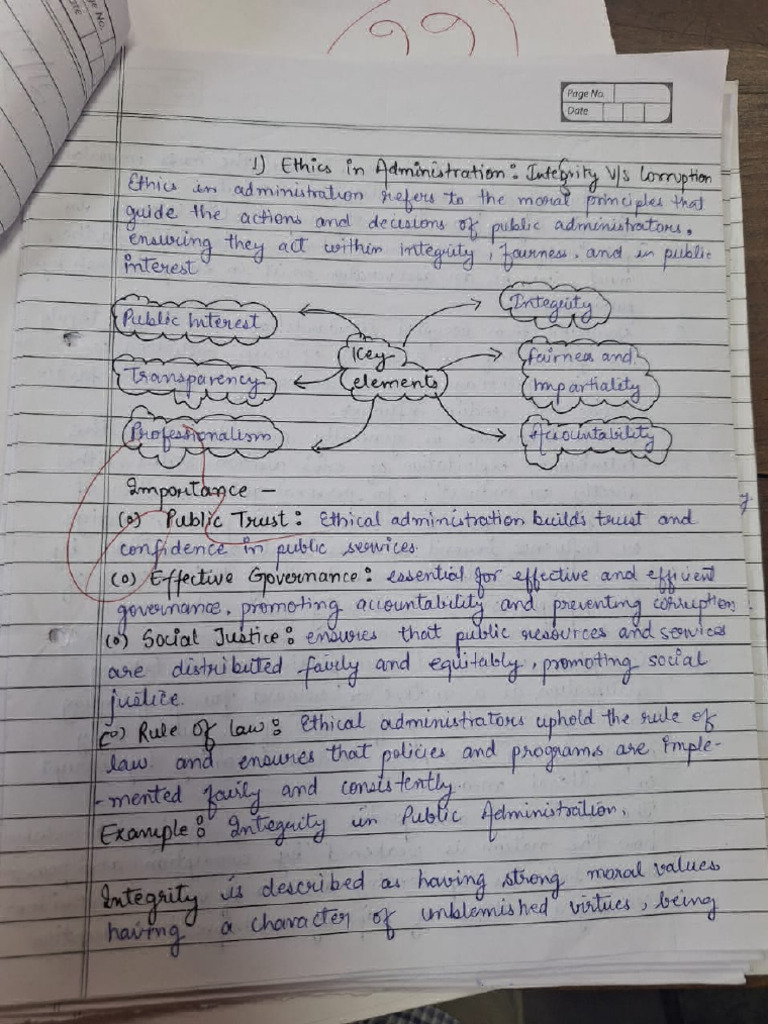 Page No.
Date
Page No.
Date
1) Ethics in Administration: Integrity V/s Corruption
Ethics in administration refers to the moral principles that
guide the actions and decisions of public administrators,
ensuring they act within integrity, fairness, and in public
interest
Public Interest
Integrity
Key
elements
Transparency
Fairness and
Impartiality
Professionalism
Accountability
Importance -
(o) Public Trust: Ethical administration builds trust and
confidence in public services.
(o) Effective Governance: essential for effective and efficient
governance, promoting accountability and preventing corruption
(o) Social Justice: ensures that public resources and services
are distributed fairly and equitably, promoting social
justice.
(o) Rule of law: Ethical administrators uphold the rule of
law and ensures that policies and programs are imple-
-mented fairly and consistently.
Example: Integrity in Public Administration.
Integrity is described as having strong moral values
having a character of unblemished virtues, being